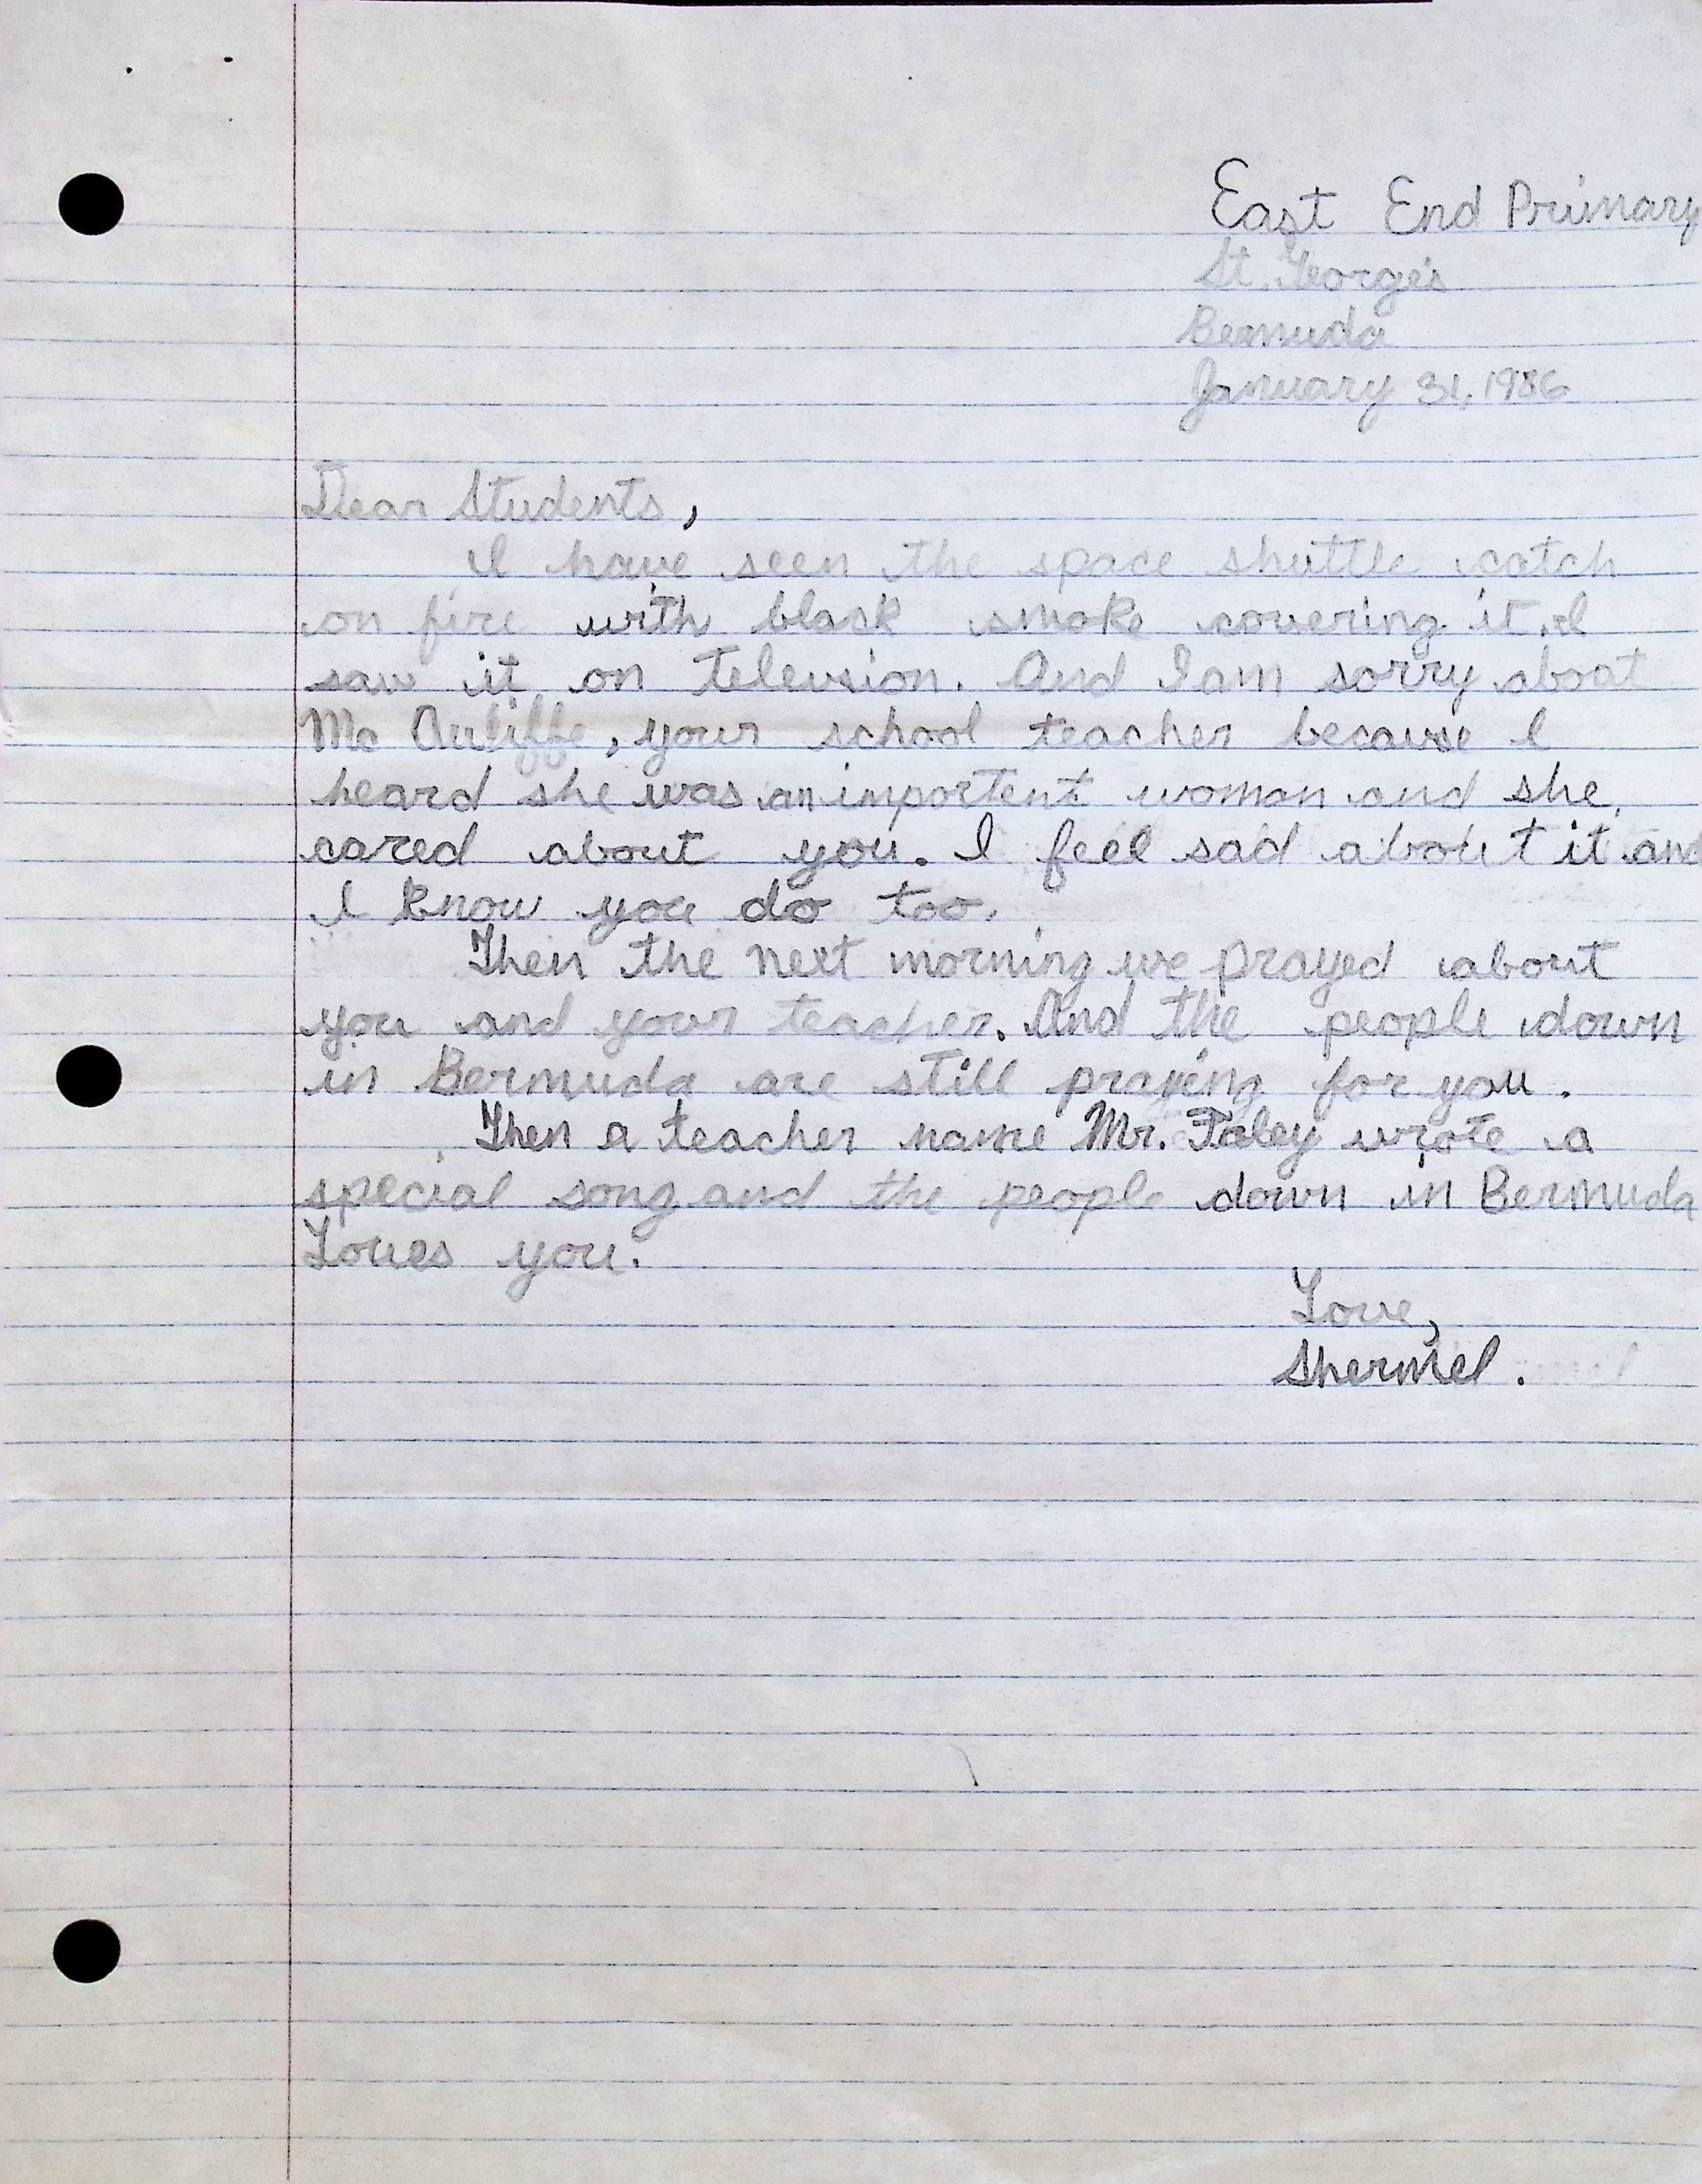 East End Primary
St. George's
Bermuda
January 31, 1986
Dear Students,
I have seen the space shuttle catch
on fire with black smoke covering it. I
saw it on television. And I am sorry about
Mc Auliffe, your school teacher because I
heard she was an importent woman and she
cared about you. I feel sad about it and
I know you do too.
Then the next morning we prayed about
you and your teacher. And the people down
in Bermuda are still praying for you.
Then a teacher name Mr. Faley wrote a
special song and the people down in Bermuda
Loves you.
Love,
Shermel.